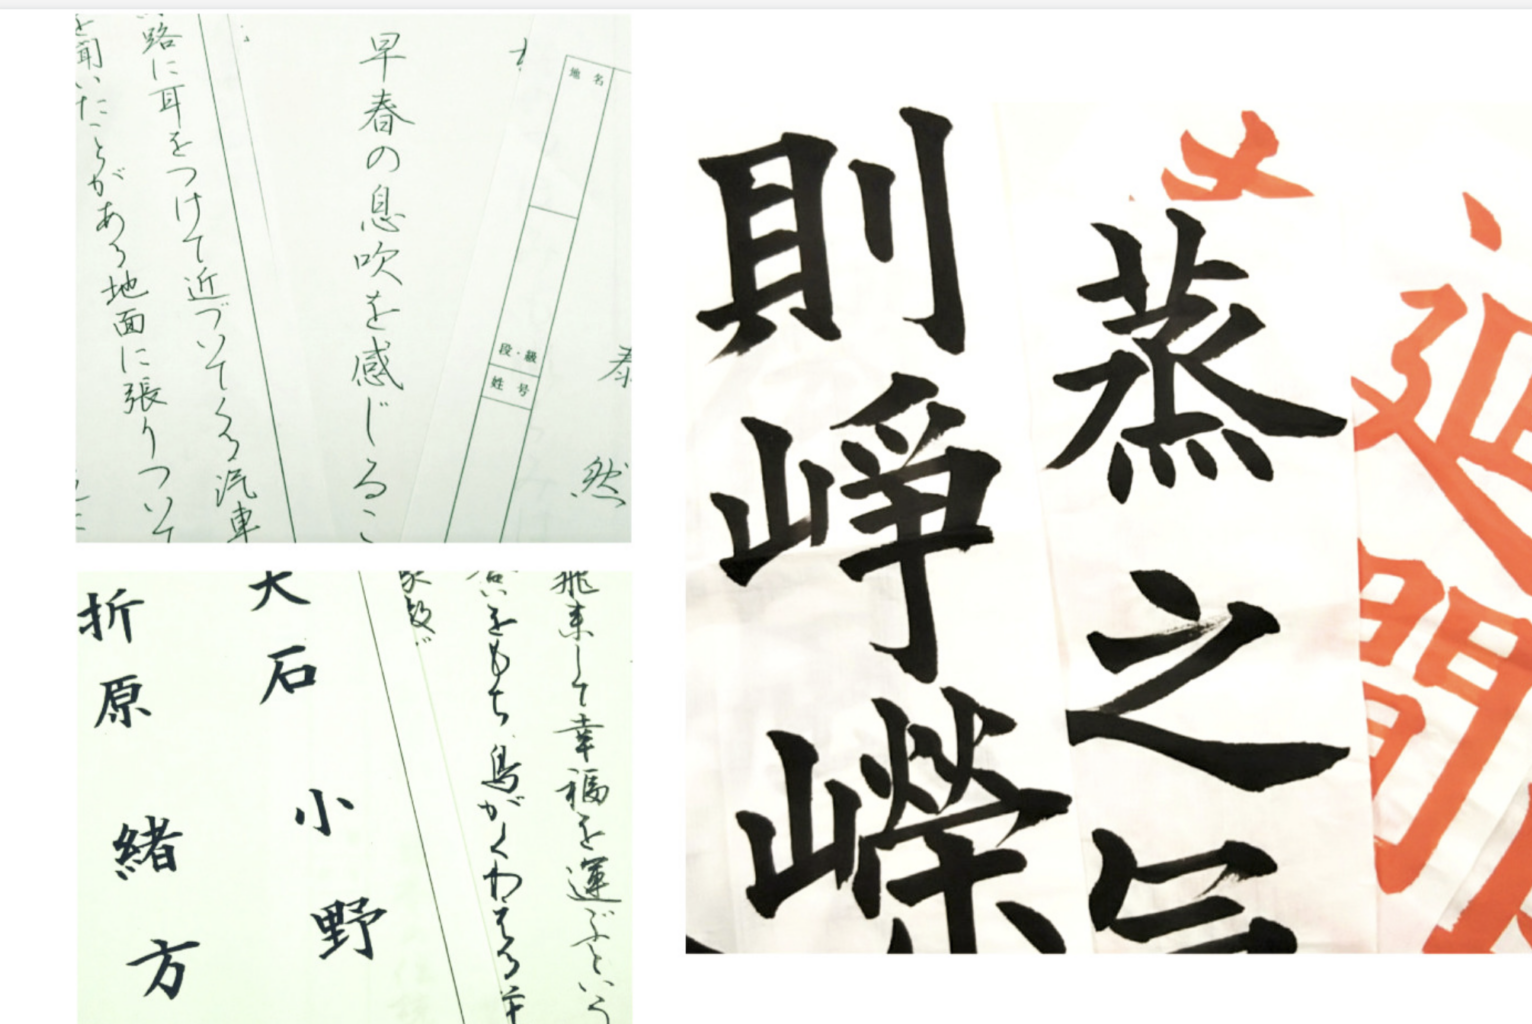 早春の息吹を感じるこ
路に耳をつけて近づいてくる汽車
を聞いたことがある地面に張りついて
地名
段・級
姓号
泰
然
飛来して幸福を運ぶという
をもち鳥がくわえる
大石
小野
折原
緒方
則崢嶸
蒸之
間